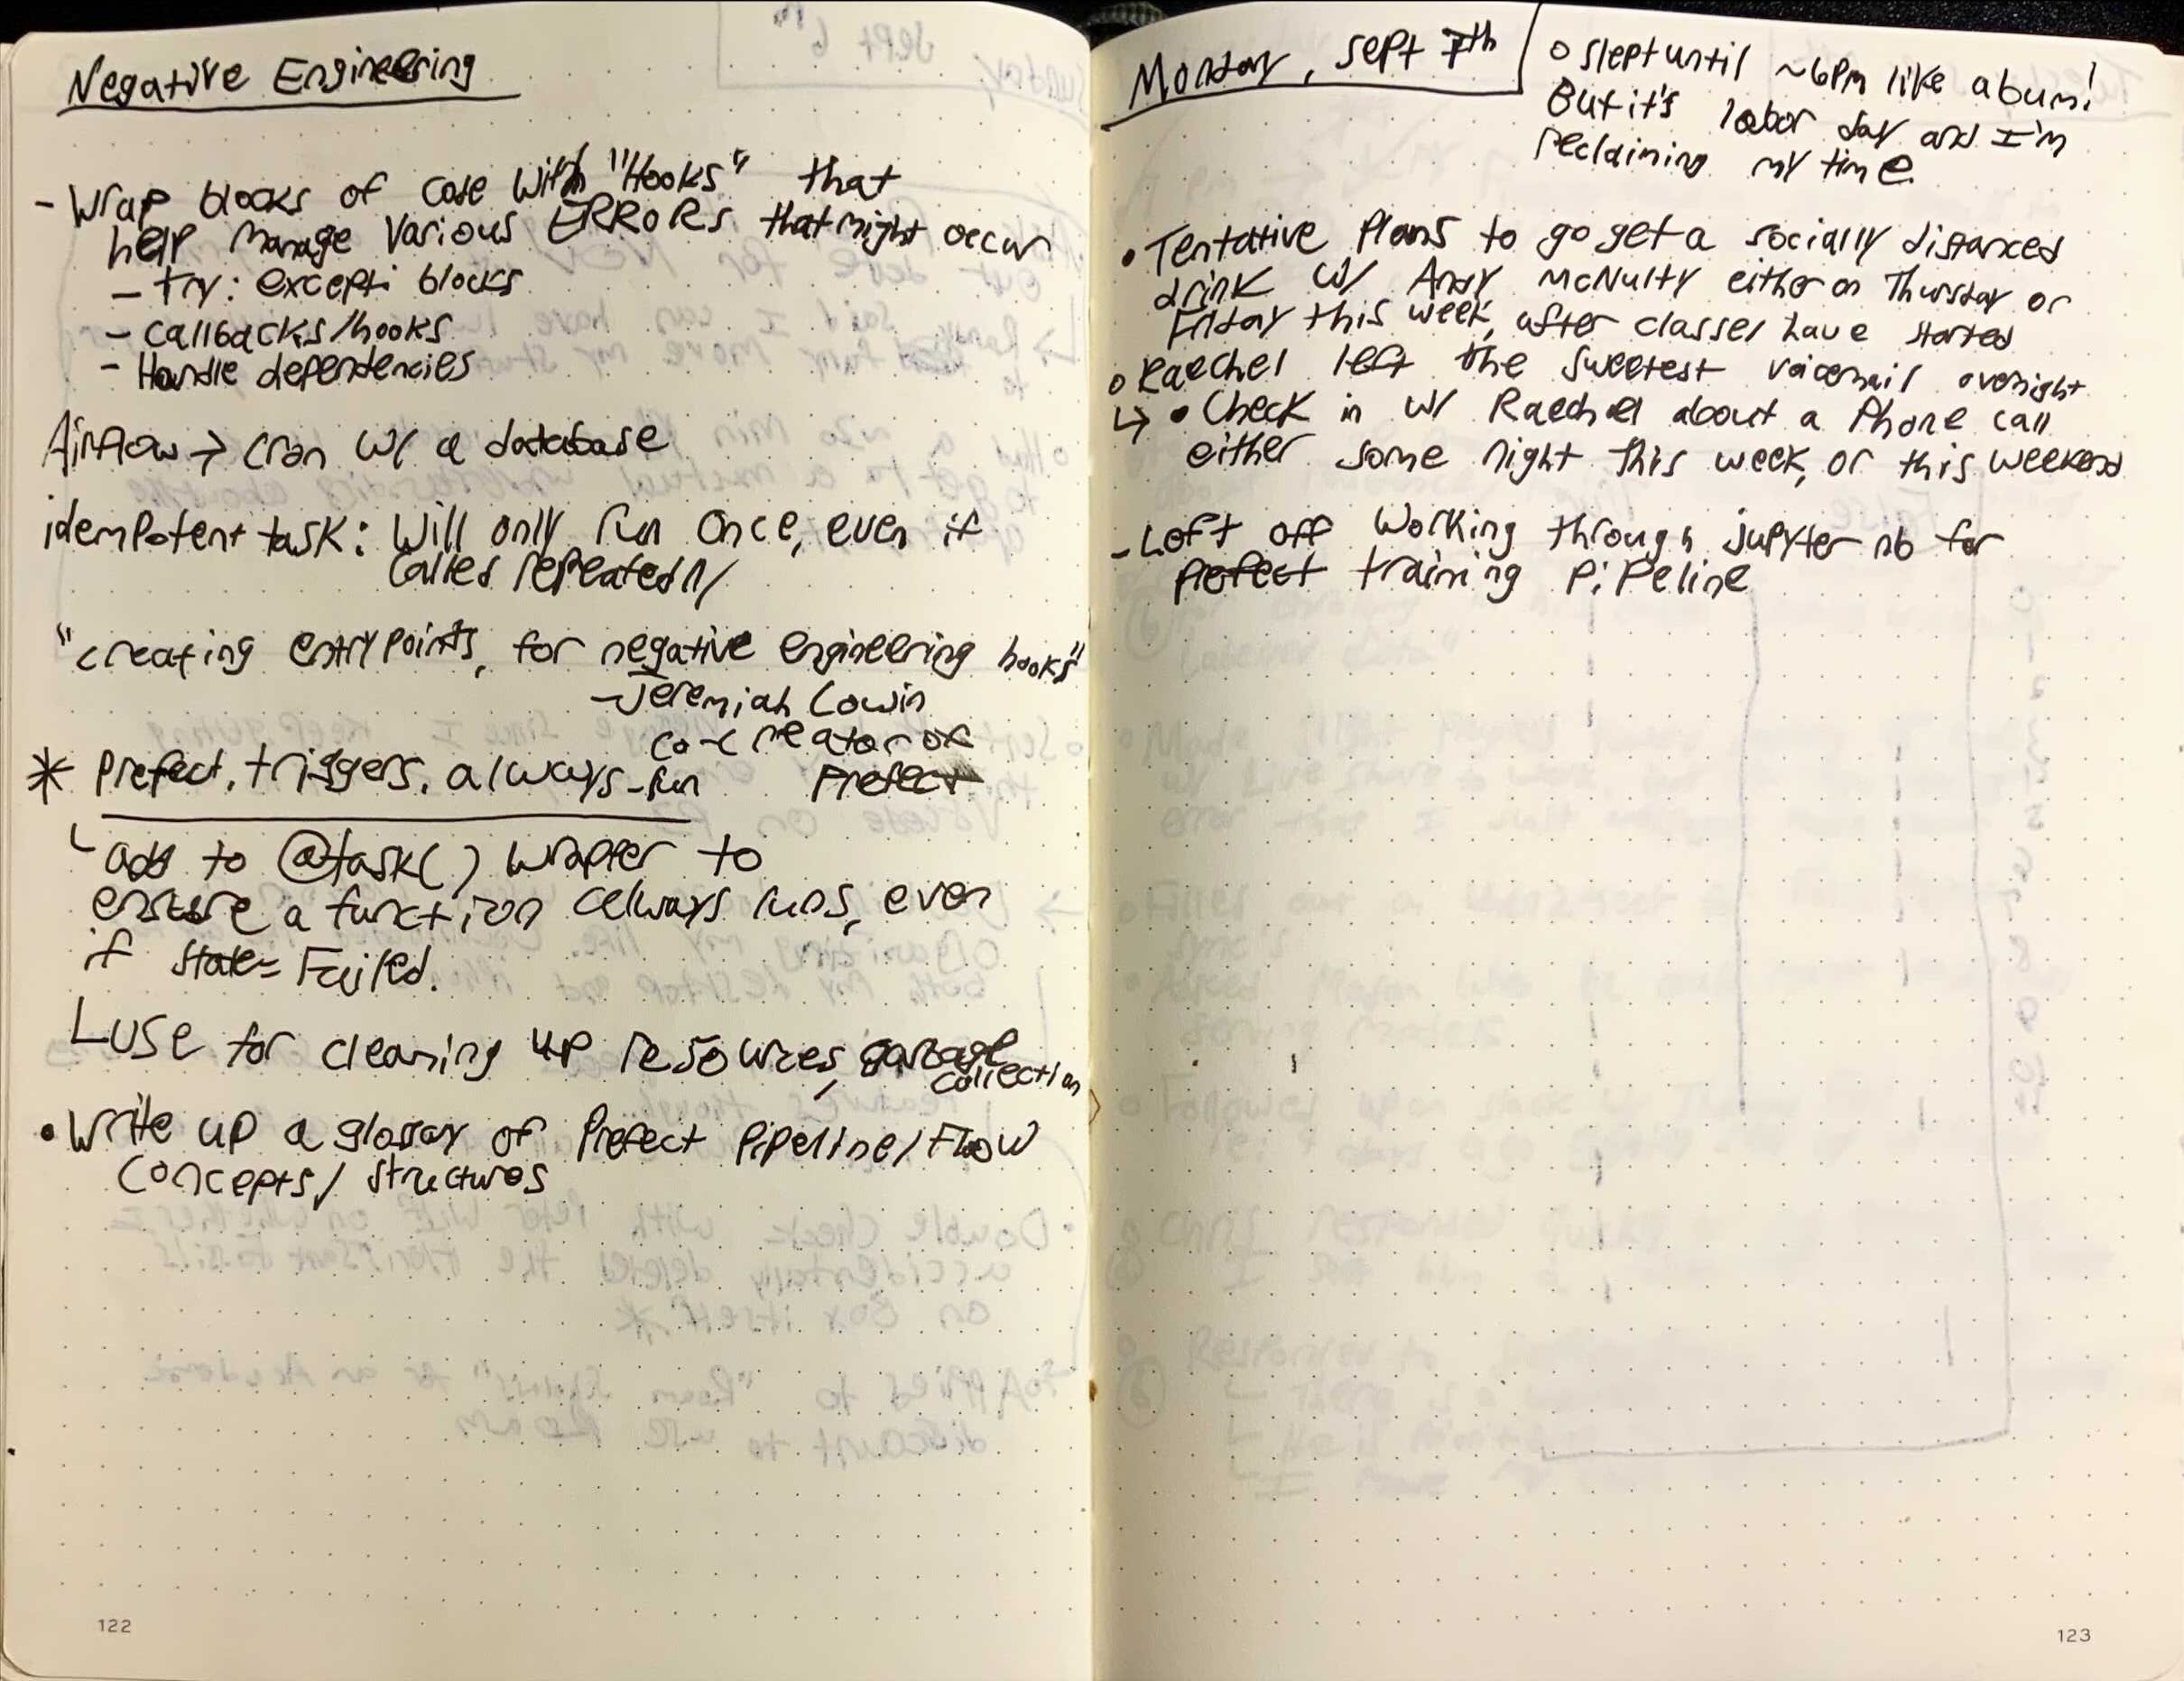 Negative Engineering
- Wrap blocks of code with "Hooks" that
help manage various ERRORS that might occur
- try: except: blocks
- callbacks/hooks
- Handle dependencies
Airflow → cron w/ a database
idempotent task: Will only run once, even if
called repeatedly
"creating entrypoints, for negative engineering hooks"
- Jeremiah Lowin
co-creator of
Prefect
* prefect.triggers.always-run
└ add to @task() wrapper to
ensure a function always runs, even
if state=Failed.
└ use for cleaning up resources, garbage
collection
• Write up a glossary of Prefect Pipeline/Flow
concepts/structures
122
Monday, Sept 7th
o slept until ~6pm like a bum!
But it's labor day and I'm
reclaiming my time.
• Tentative plans to go get a socially distanced
drink w/ Andy McNulty either on Thursday or
Friday this week, after classes have started
o Raechel left the sweetest voicemail overnight
↳ • Check in w/ Raechel about a phone call
either some night this week, or this weekend
- Left off working through jupyter nb for
prefect training pipeline
123